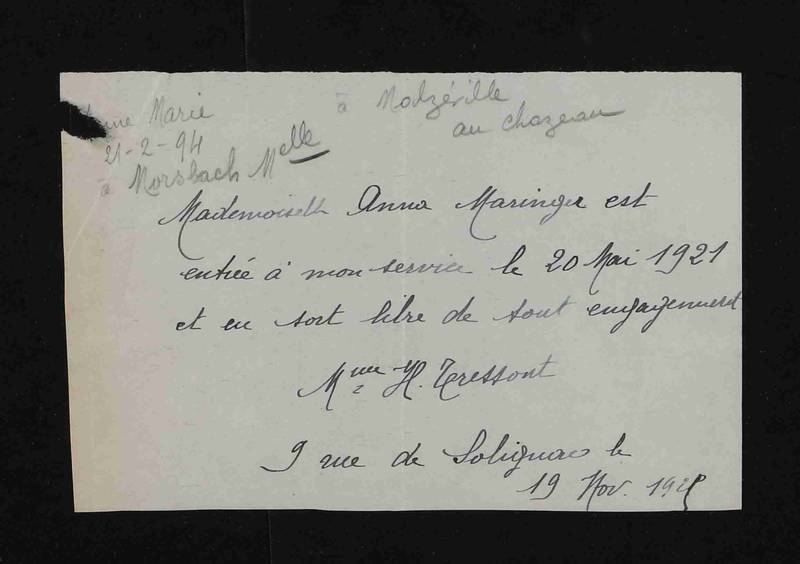 Marie
à Malzéville
au Chazeau
21-2-94
à Morsbach Melle
Mademoiselle Anna Maringer est
entrée à mon service le 20 Mai 1921
et en sort libre de tout engagement
Mme H. Tressont
9 rue de Solignac le
19 Nov. 192